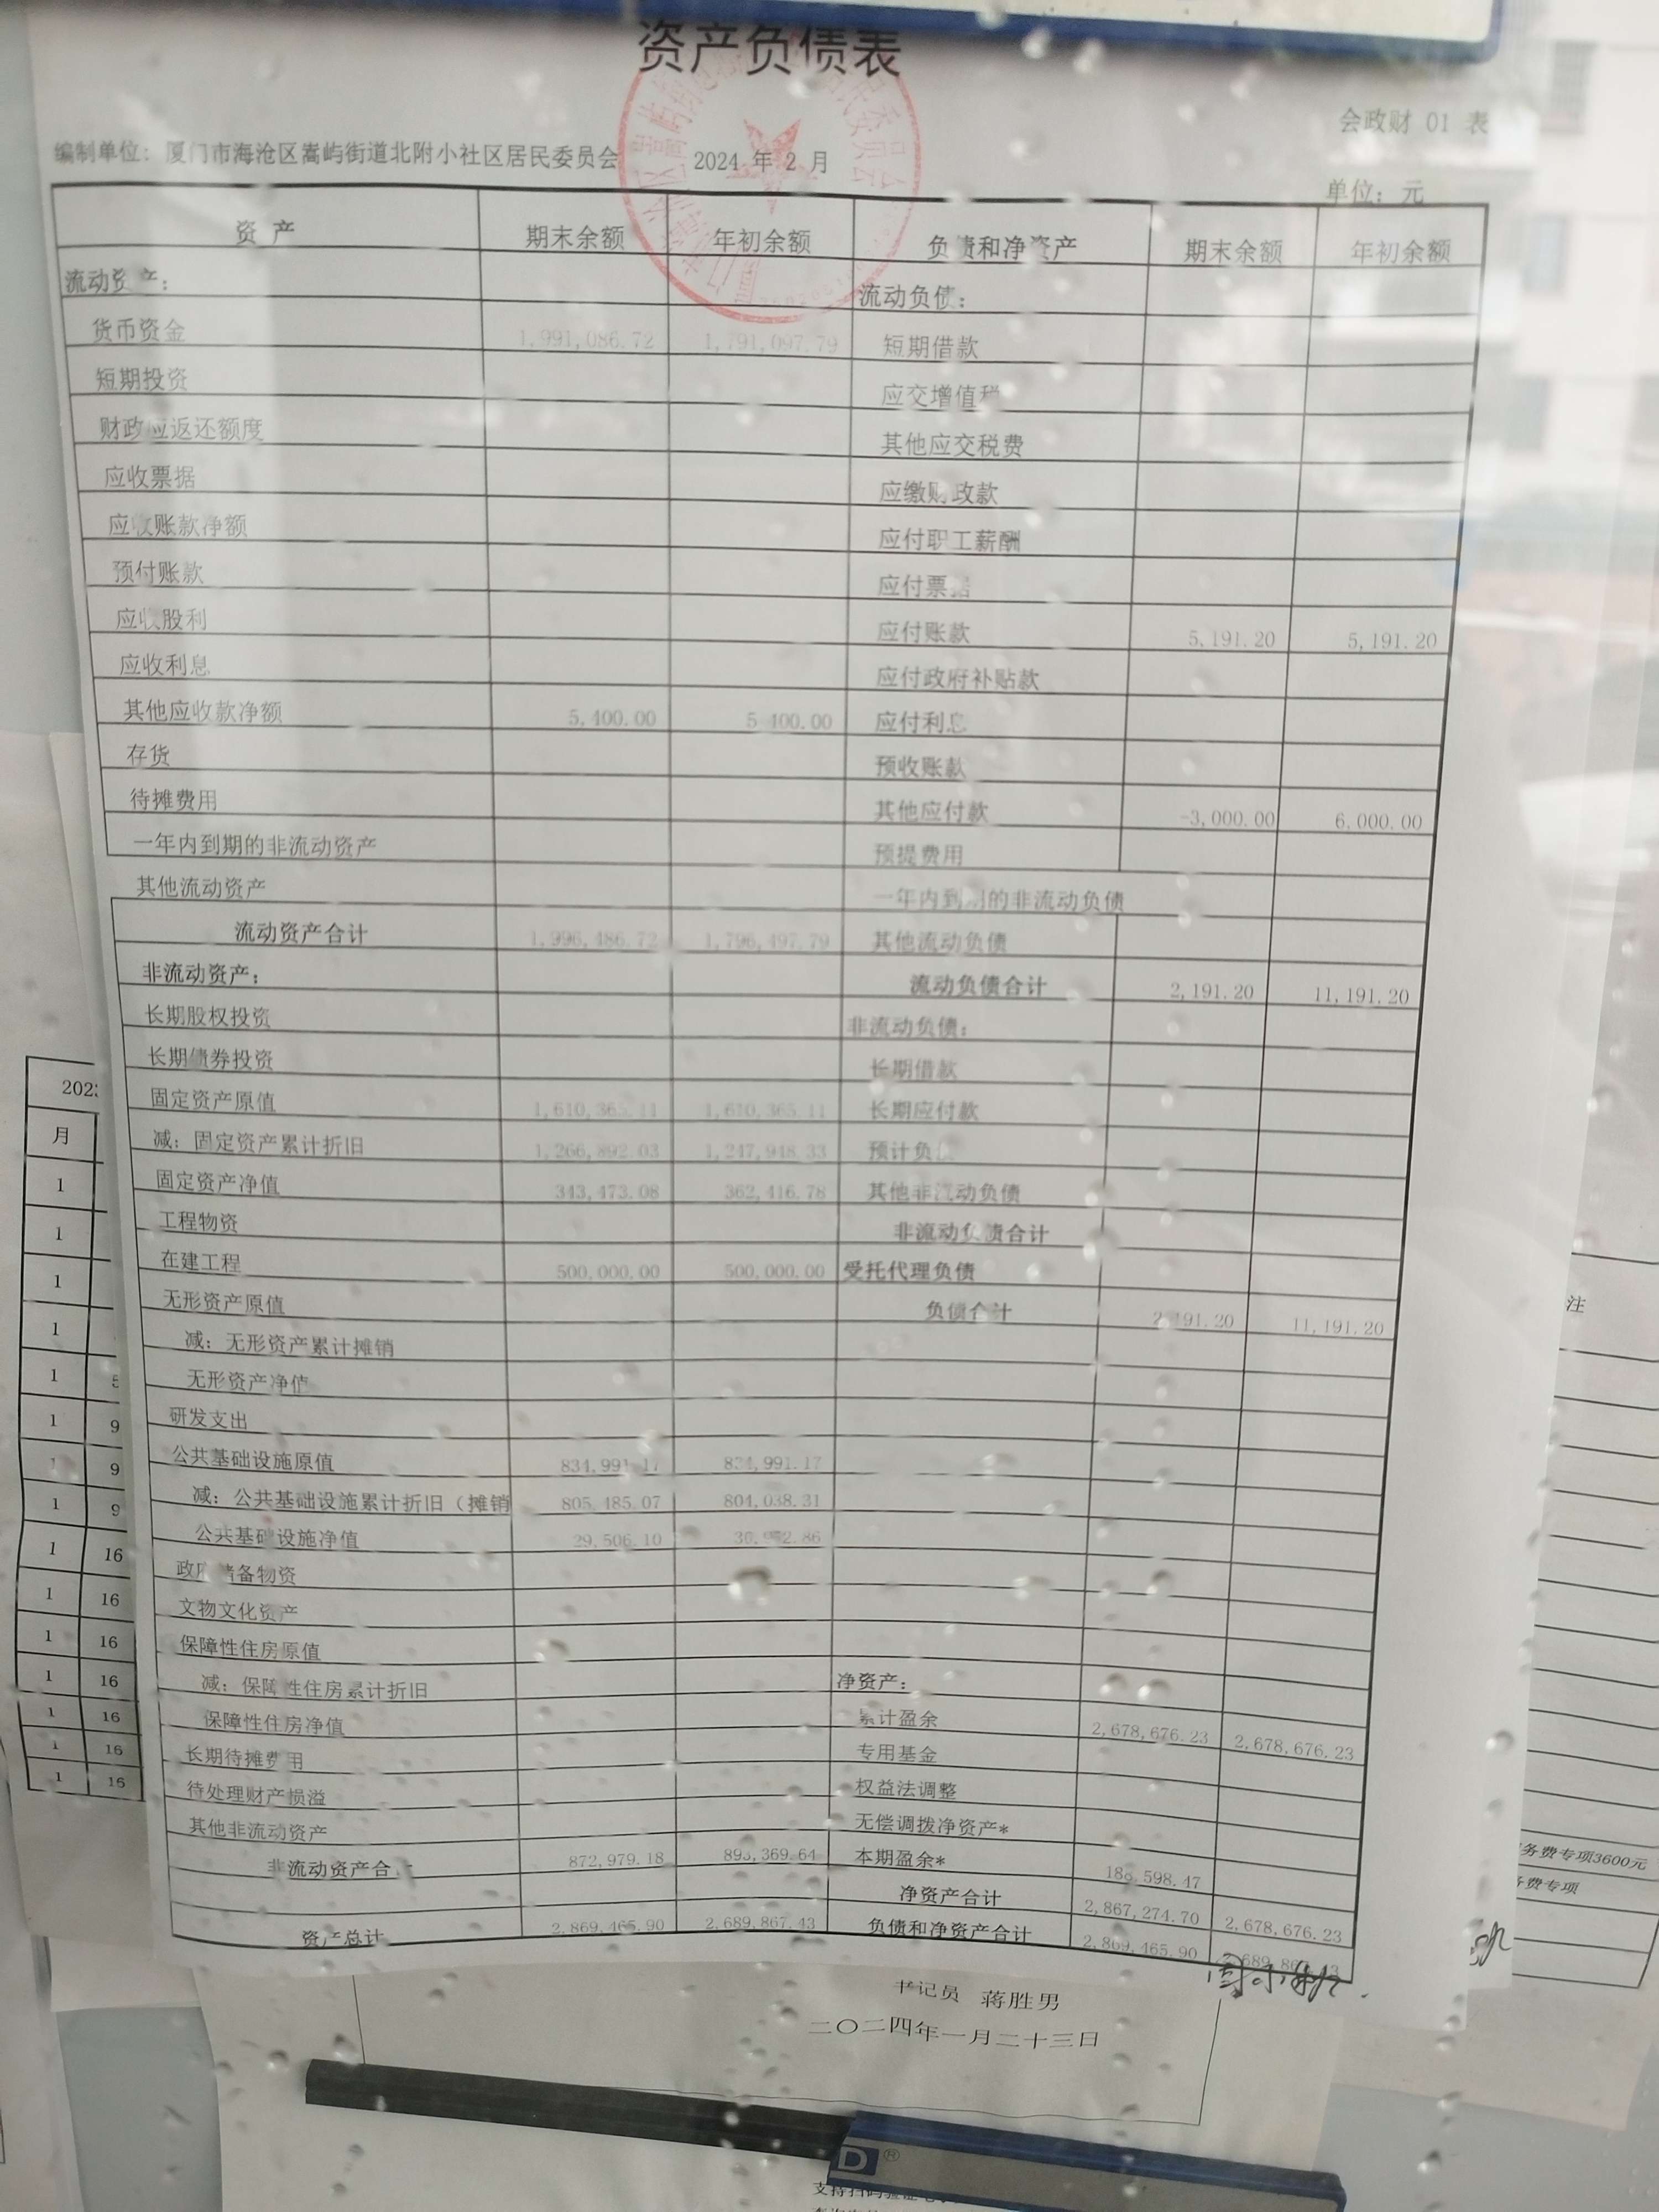 资产负债表
会政财 01 表
编制单位: 厦门市海沧区嵩屿街道北附小社区居民委员会 2024 年 2 月
单位: 元
资 产 期末余额 年初余额 负债和净资产 期末余额 年初余额
流动资产: 流动负债:
货币资金 1,991,086.72 1,791,097.79 短期借款
短期投资 应交增值税
财政应返还额度 其他应交税费
应收票据 应缴财政款
应收账款净额 应付职工薪酬
预付账款 应付票据
应收股利 应付账款 5,191.20 5,191.20
应收利息 应付政府补贴款
其他应收款净额 5,400.00 5,400.00 应付利息
存货 预收账款
待摊费用 其他应付款 -3,000.00 6,000.00
一年内到期的非流动资产 预提费用
其他流动资产 一年内到期的非流动负债
流动资产合计 1,996,486.72 1,796,497.79 其他流动负债
非流动资产: 流动负债合计 2,191.20 11,191.20
长期股权投资 非流动负债:
长期债券投资 长期借款
固定资产原值 1,610,365.11 1,610,365.11 长期应付款
减: 固定资产累计折旧 1,266,892.03 1,247,948.33 预计负债
固定资产净值 343,473.08 362,416.78 其他非流动负债
工程物资 非流动负债合计
在建工程 500,000.00 500,000.00 受托代理负债
无形资产原值 负债合计 2,191.20 11,191.20
减: 无形资产累计摊销
无形资产净值
研发支出
公共基础设施原值 834,991.17 834,991.17
减: 公共基础设施累计折旧（摊销 805,485.07 804,038.31
公共基础设施净值 29,506.10 30,952.86
政府储备物资
文物文化资产
保障性住房原值
减: 保障性住房累计折旧 净资产:
保障性住房净值 累计盈余 2,678,676.23 2,678,676.23
长期待摊费用 专用基金
待处理财产损溢 权益法调整
其他非流动资产 无偿调拨净资产*
非流动资产合计 872,979.18 893,369.64 本期盈余* 188,598.47
净资产合计 2,867,274.70 2,678,676.23
资产总计 2,869,465.90 2,689,867.43 负债和净资产合计 2,869,465.90 2,689,867.43
书记员 蒋胜男
二〇二四年一月二十三日
月
1
1
1
1
1
1 9
1 9
1 9
1 16
1 16
1 16
1 16
1 16
1 16
1 16
注
务费专项3600元
务费专项
D®